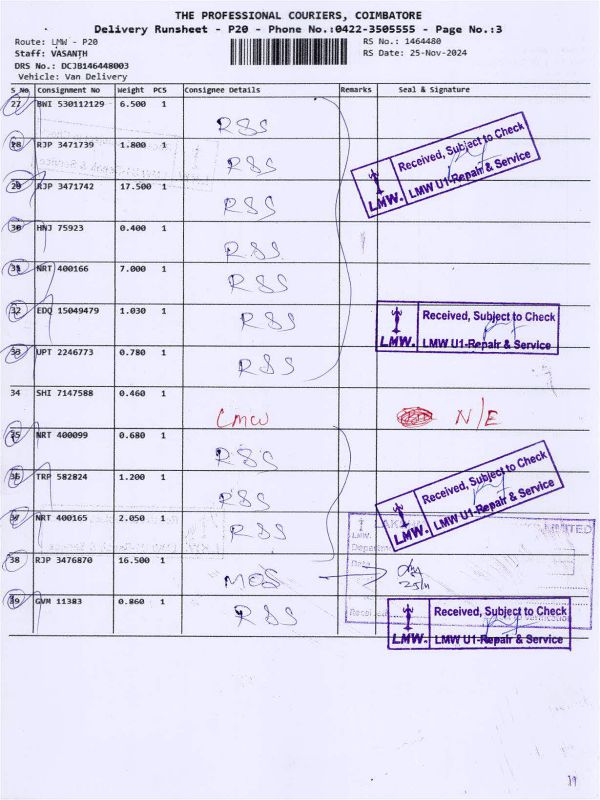 THE PROFESSIONAL COURIERS, COIMBATORE
Delivery Runsheet - P20 - Phone No.:0422-3505555 - Page No.:3
Route: LMW - P20 RS No.: 1464480
Staff: VASANTH RS Date: 25-Nov-2024
DRS No.: DCJB146448003
Vehicle: Van Delivery
S_No Consignment No Weight PCS Consignee Details Remarks Seal & Signature
27 BWI 530112129 6.500 1 RSS
28 RJP 3471739 1.800 1 RSS
Received, Subject to Check
LMW. LMW U1-Repair & Service
29 RJP 3471742 17.500 1 RSS
30 HNJ 75923 0.400 1 RSS
31 NRT 400166 7.000 1 RSS
32 EDQ 15049479 1.030 1 RSS
Received, Subject to Check
LMW. LMW U1-Repair & Service
33 UPT 2246773 0.780 1 RSS
34 SHI 7147588 0.460 1 LMW N/E
35 NRT 400099 0.680 1 RSS
Received, Subject to Check
LMW. LMW U1-Repair & Service
36 TRP 582824 1.200 1 RSS
37 NRT 400165 2.050 1 RSS
LIMITED
38 RJP 3476870 16.500 1 MOS
25/11
39 GVM 11383 0.860 1 RSS
Received, Subject to Check
LMW. LMW U1-Repair & Service
19